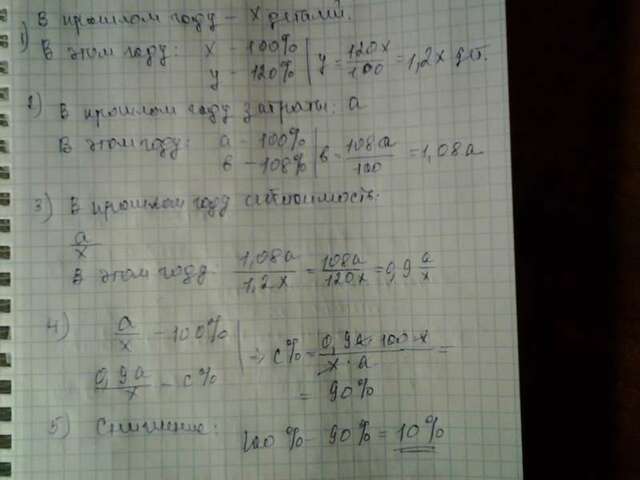 1) В прошлом году – x деталей.
В этом году: x – 100% | y = 120x/100 = 1,2x дет.
y – 120%
2) В прошлом году затраты: a
В этом году: a – 100% | в = 108a/100 = 1,08a
в – 108%
3) В прошлом году себестоимость:
a/x
В этом году 1,08a/1,2x = 108a/120x = 0,9 a/x
4) a/x – 100% | => c% = 0,9a·100·x/x·a =
0,9a/x – c%
= 90%
5) Снижение: 100% – 90% = 10%